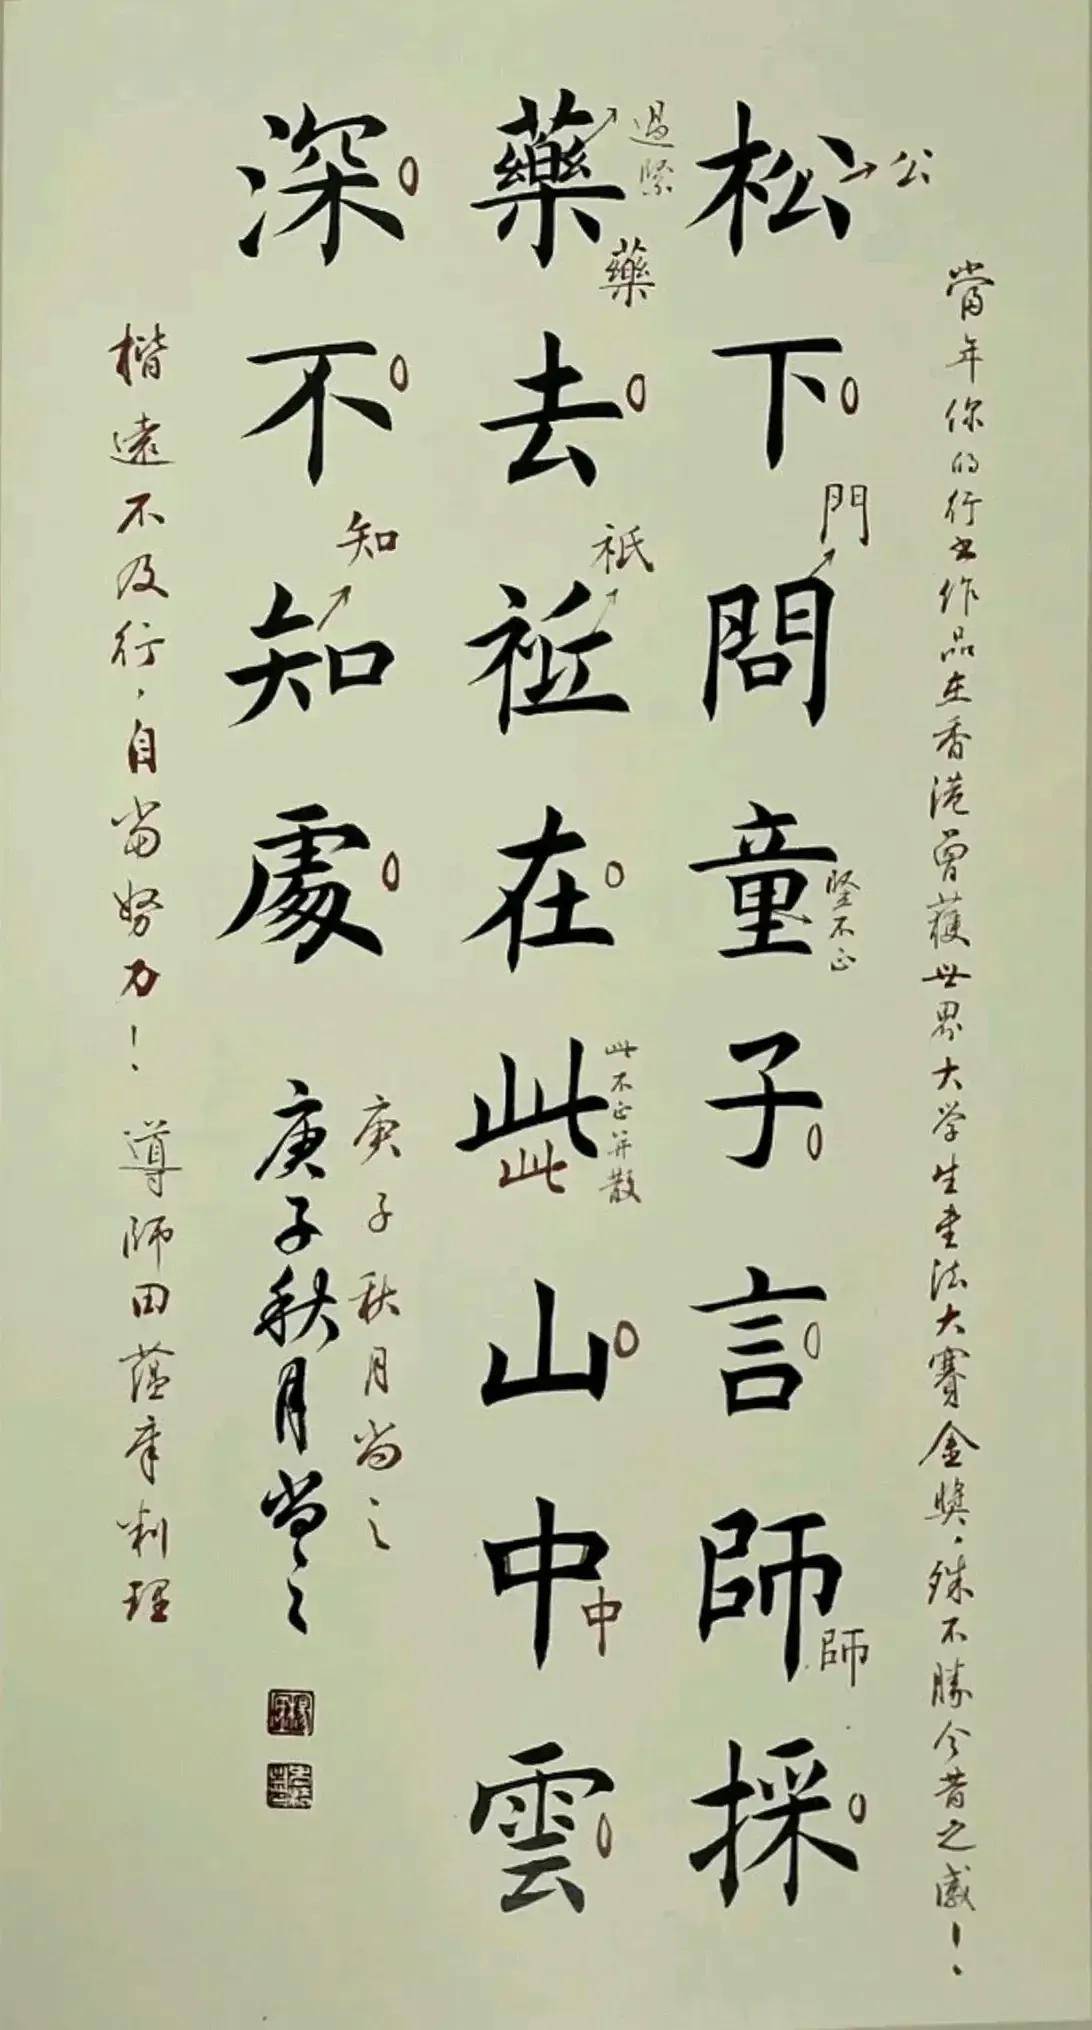 當年你的行书作品在香港曾獲世界大学生書法大賽金獎，殊不勝今昔之感！
松下問童子言師採
公
門
竖不正
師
藥去祗在此山中雲
過緊
藥
祗
此不正并散
此
中
深不知處
知
庚子秋月尚之
庚子秋月尚之
楷遠不及行，自當努力！導師田蕴章判理